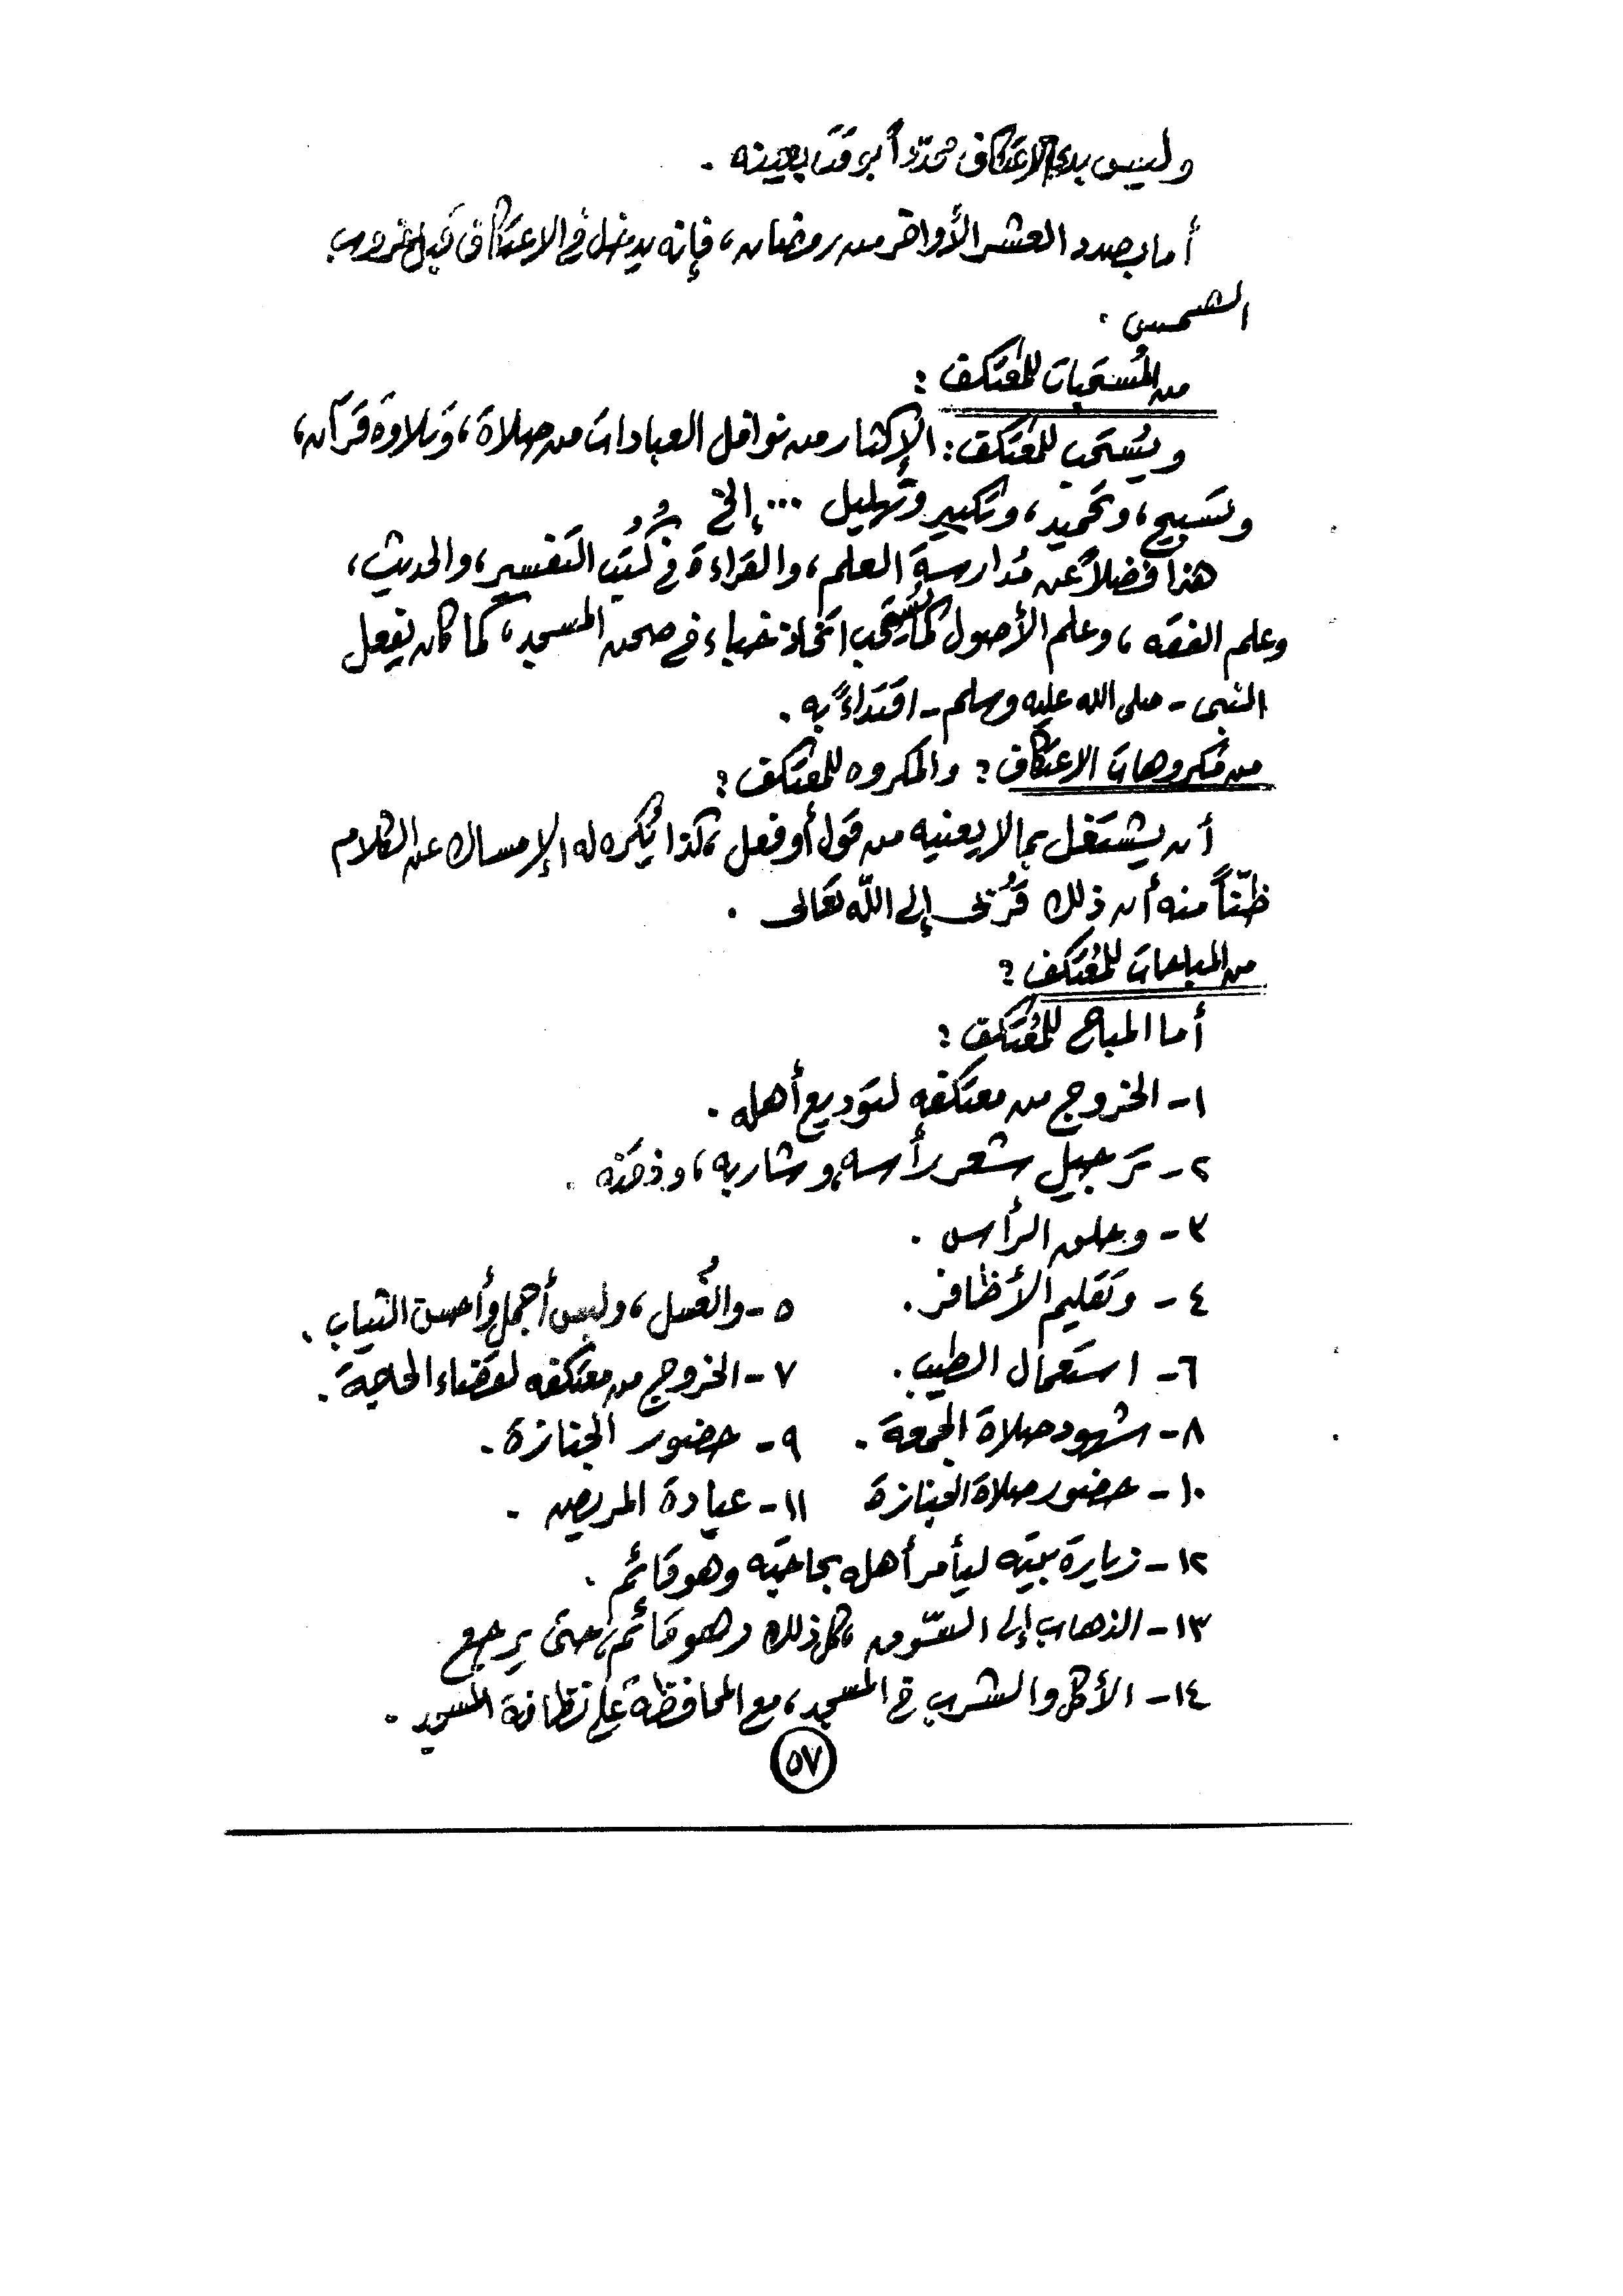 وليس بدء الاعتكاف محدّداً بوقت بعينه .
أما بصدد العشر الأواخر من رمضان، فإنه يدخل في الاعتكاف قبل غروب
الشمس .
من المُستحبات للمعتكف :
ويُستحب للمعتكف : الإكثار من نوافل العبادات من صلاة، وتلاوة قرآن،
وتسبيح، وتحميد، وتكبير وتهليل ... إلخ
هذا فضلاً عن مُدارسة العلم، والقراءة في كُتُب التفسير، والحديث،
وعلم الفقه، وعلم الأصول كما يُستحب اتخاذ خباء في صحن المسجد، كما كان يفعل
النبى - صلى الله عليه وسلم - اقتداءً به .
من مكروهات الاعتكاف : والمكروه للمعتكف :
أن يشتغل بما لا يعنيه من قول أو فعل، كذا يُكره له الإمساك عن الكلام
ظنّاً منه أن ذلك قُربى إلى الله تعالى .
من المباحات للمُعتكف :
أما المباح للمُعتكف :
١- الخروج من معتكفه لتوديع أهله .
٢- ترجيل شعر رأسه، وشاربه، وذقنه .
٣- وحلق الرأس .
٤- وتقليم الأظافر . ٥- والغُسل، ولبس أجمل وأحسن الثياب .
٦- استعمال الطيب . ٧- الخروج من معتكفه لقضاء الحاجة .
٨- شهود صلاة الجمعة . ٩- حضور الجنازة .
١٠- حضور صلاة الجنازة ١١- عيادة المريض .
١٢- زيارة بيته ليأمر أهله بحاجته وهو قائم .
١٣- الذهاب إلى السّوق، كل ذلك وهو قائم، حتى يرجع
١٤- الأكل والشرب في المسجد، مع المحافظة على نظافة المسجد .
٥٧